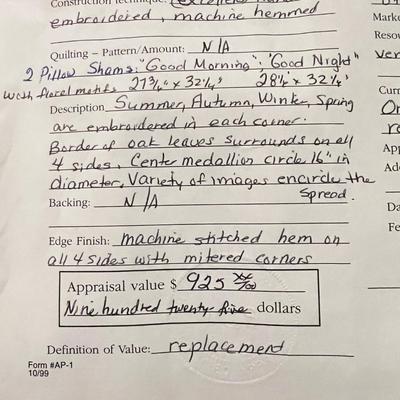 Construction technique:
embroidered, machine hemmed
Marke
Resou
Quilting – Pattern/Amount: N/A
ver
2 Pillow Shams: "Good Morning"; "Good Night"
with floral motifs 27 3/4" x 32 1/4" 28 1/4" x 32 1/4"
Description Summer, Autumn, Winter, Spring
Curr
are embroidered in each corner.
On
Border of oak leaves surrounds on all
4 sides. Center medallion circle 16" in
App
diameter. Variety of images encircle the
Ad
Spread.
Backing: N/A
Da
Fe
Edge Finish: machine stitched hem on
all 4 sides with mitered corners
Appraisal value $ 925 xx/00
Nine hundred twenty five dollars
Definition of Value: replacement
Form #AP-1
10/99